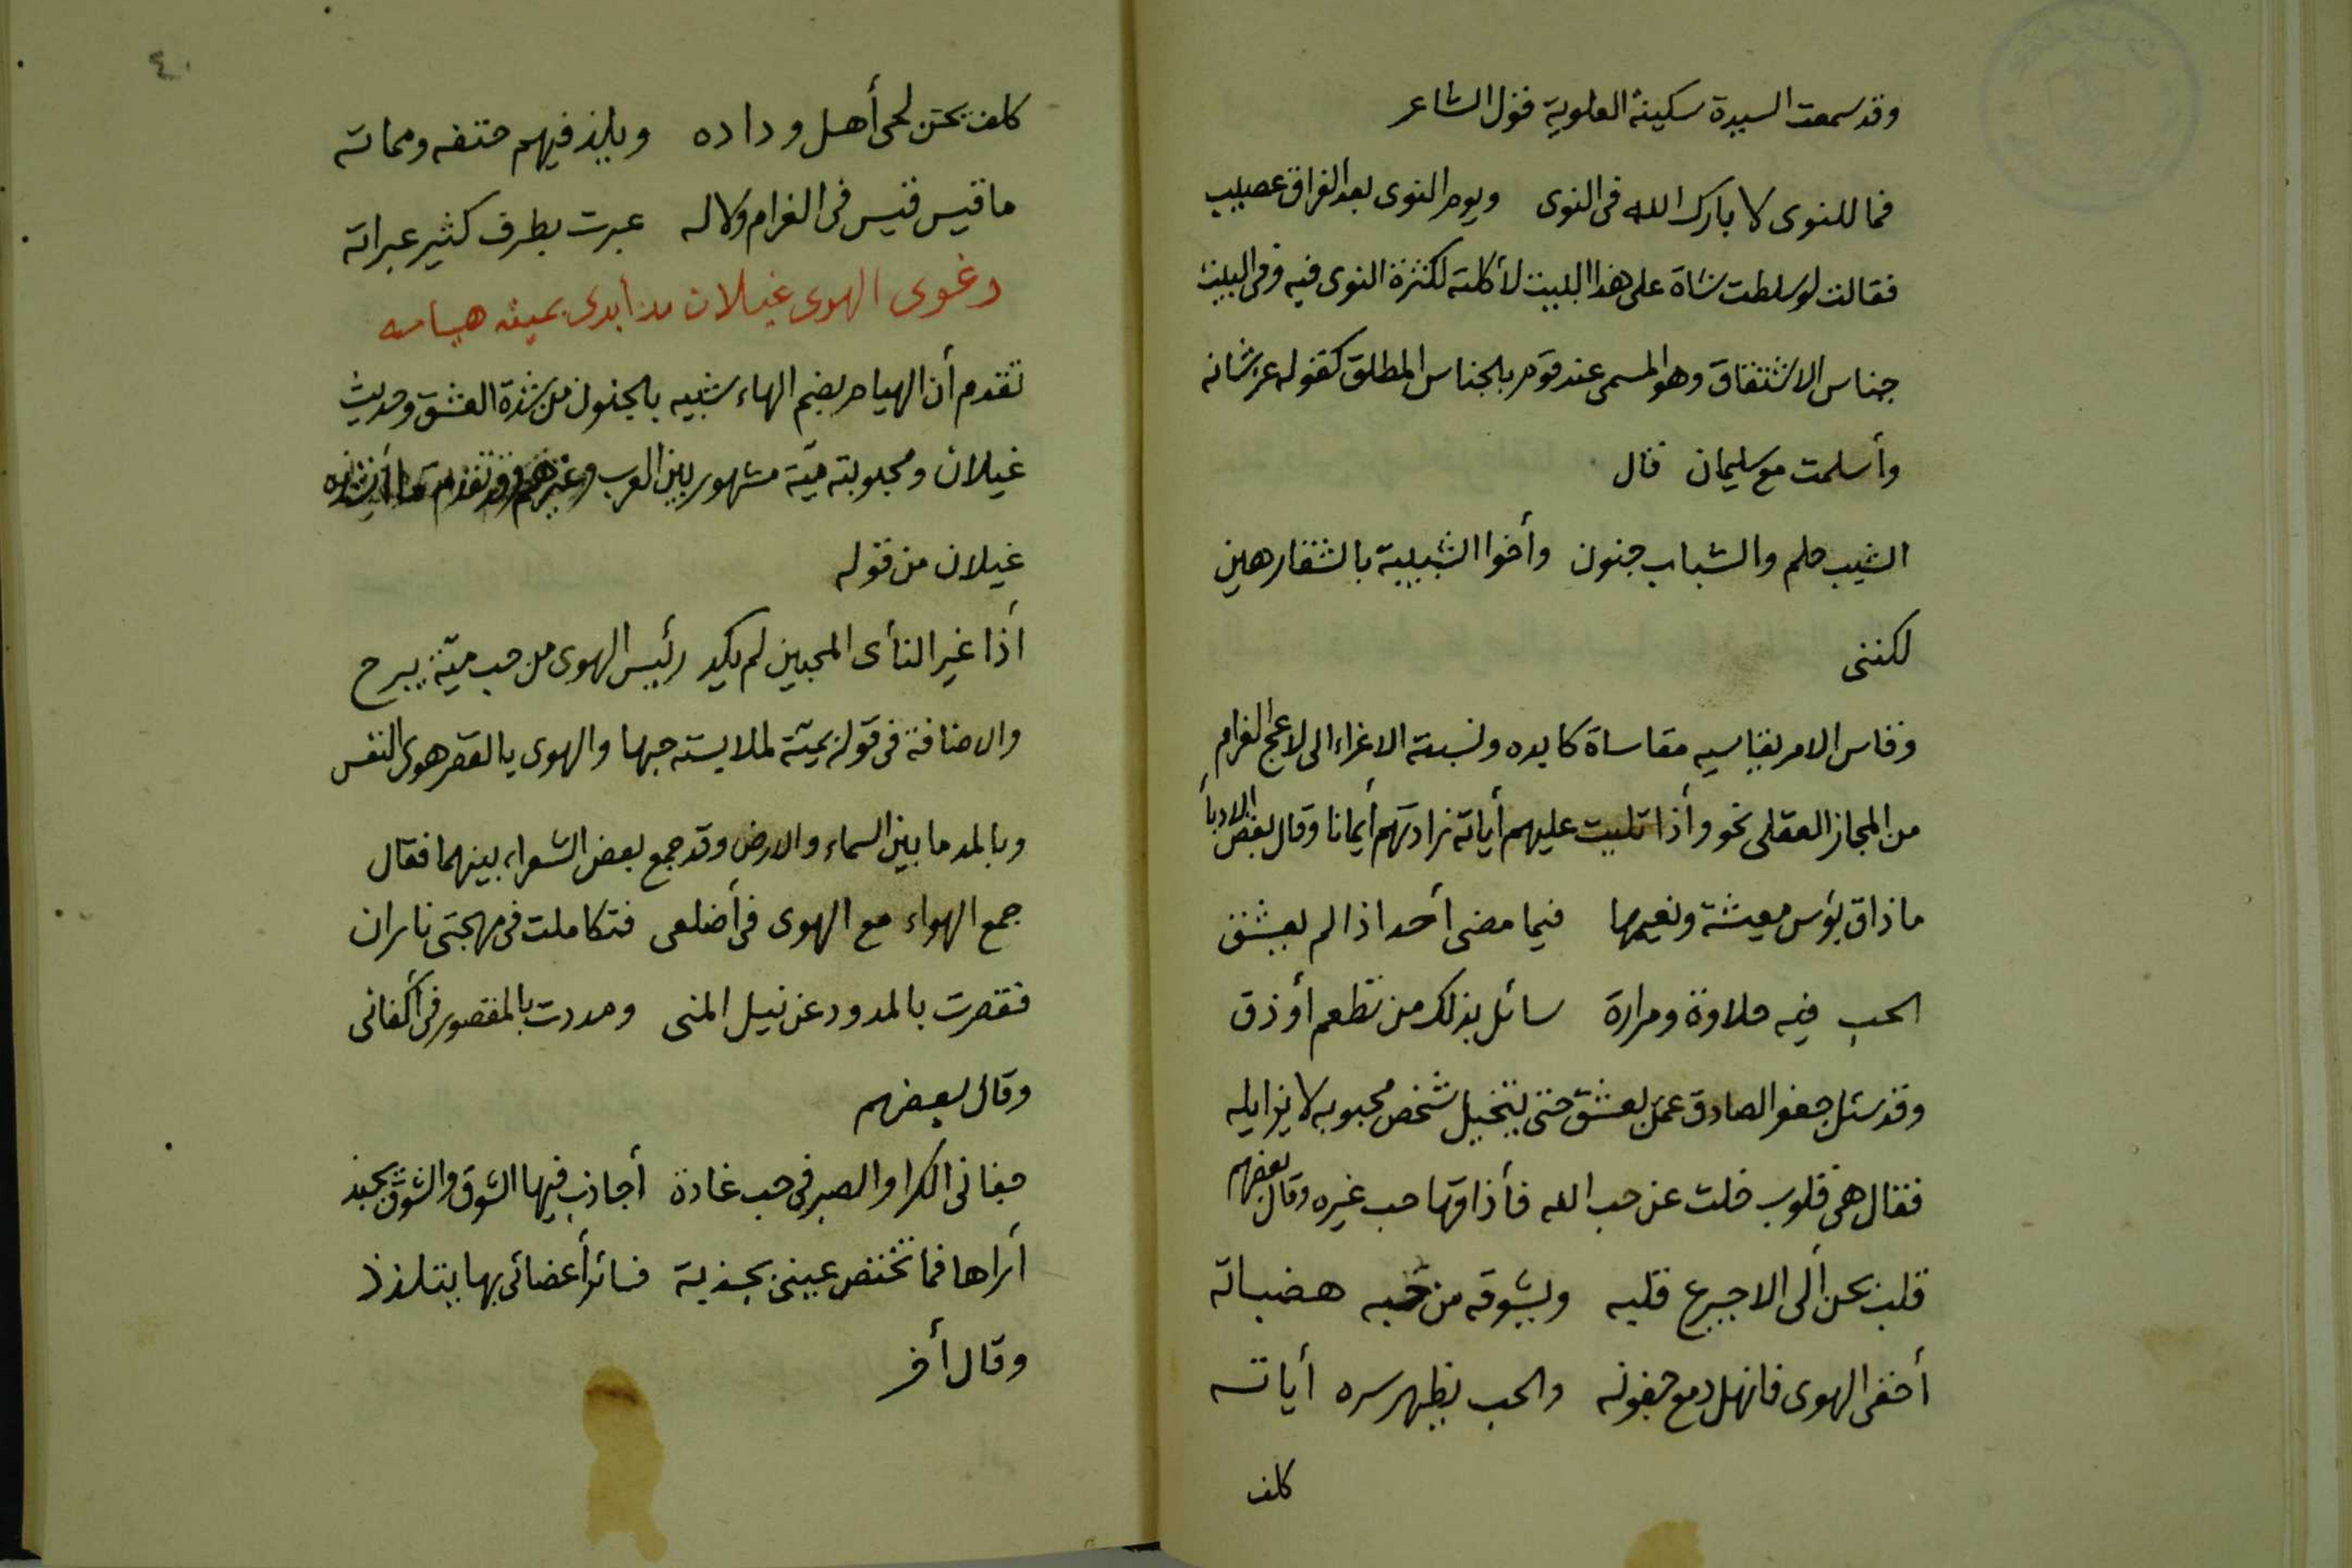 وقد سمعت السيدة سكينة العلوية قول الشاعر
فما للنوى لا بارك الله فى النوى ويوم النوى بعد الفراق عصيب
فقالت لو سلطت شاة على هذا البيت لأكلته لكثرة النوى فيه وفى البيت
جناس الاشتقاق وهو المسمى عند قوم بالجناس المطلق كقوله عز شانه
وأسلمت مع سليمان قال
الشيب حلم والشباب جنون وأخوا الشبيبة بالشقار هين
لكننى
وقاس الامر يقاسيه مقاساة كابده ونسبة الاغراء الى لاعج الغرام
من المجاز العقلى نحو وأذا تليت عليهم أياته زادتهم أيمانا وقال بعض الادبأ
ما ذاق بؤس معيشة ونعيمها فيما مضى أحد اذا لم يعشق
الحب فيه حلاوة ومرارة سائل بذلك من تطعم أو ذق
وقد سئل جعفر الصادق عمن يعشق حتى يتخيل شخص محبوبه لا يزايله
فقال هى قلوب خلت عن حب الله فأذاقها حب غيره وقال بعضهم
قلب يحن ألى الاجيرع قلبه ويشوقه من حبه هضباته
أخفى الهوى فانهل دمع جفونه والحب يظهر سره أياته
كلف
٤٠
كلف يحن لحى أهل وداده ويلذ فيهم حتفه ومماته
ما قيس قيس فى الغرام ولا له عبرت بطرف كثير عبراته
دعوى الهوى غيلان مذ أبدى بميته هيامه
تقدم أن الهيام بضم الهاء شبيه بالجنون من شدة العشق وحديث
غيلان ومحبوبته ميّة مشهور بين العرب وغيرهم وقد تقدم ما أنشده
غيلان من قوله
أذا غير النأى المحبين لم يكد رئيس الهوى من حب ميّة يبرح
والاضافة فى قوله بميته لملابسته حبها والهوى بالقصر هوى النفس
وبالمد ما بين السماء والارض وقد جمع بعض الشعراء بينهما فقال
جمع الهواء مع الهوى فى أضلعى فتكاملت فى مهجتى ناران
فقصرت بالمدود عن نيل المنى ومددت بالمقصور فى أكفانى
وقال بعضهم
جفانى الكرا والصبر فى حب غادة أجاذب فيها الشوق والشوق يجبذ
أراها فما تختص عينى بجذبة فسائر أعضائى بها يتلذذ
وقال أخر